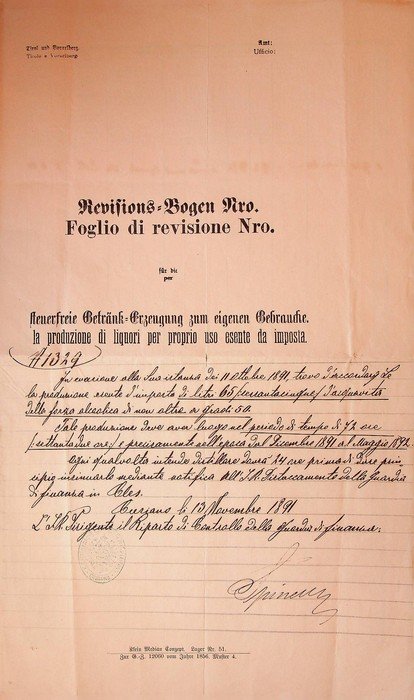 Tirol und Vorarlberg.
Tirolo e Vorarlberg.
Amt:
Ufficio:
Revisions-Bogen Nro.
Foglio di revisione Nro.
für die
per
steuerfreie Getränk-Erzeugung zum eigenen Gebrauche.
la produzione di liquori per proprio uso esente da imposta.
1329
In evasione alla Sua istanza dei 11 Ottobre 1891, trovo d'accordargli
la produzione esente d'imposta di litri 65 /sessantacinque/ d'acquavita
della forza alcoolica di non oltre a gradi 50.
Tale produzione deve aver luogo nel periodo di tempo di 72 ore
/settantadue ore/ e precisamente nell'epoca dal 1 Dicembre 1891 al 1 Maggio 1892.
Ogni qualvolta intende distillare dovrà 24 ore prima di dare prin-
cipio insinuarlo mediante notifica all' I. R. Distaccamento della Guardia
di finanza in Cles.
13 Novembre 1891
L' I. R. Dirigente il Riparto di Controllo della guardia di finanza:
Klein Median Conzept. Lager Nr. 51.
Zur G.-Z. 12060 vom Jahre 1856. Muster 4.